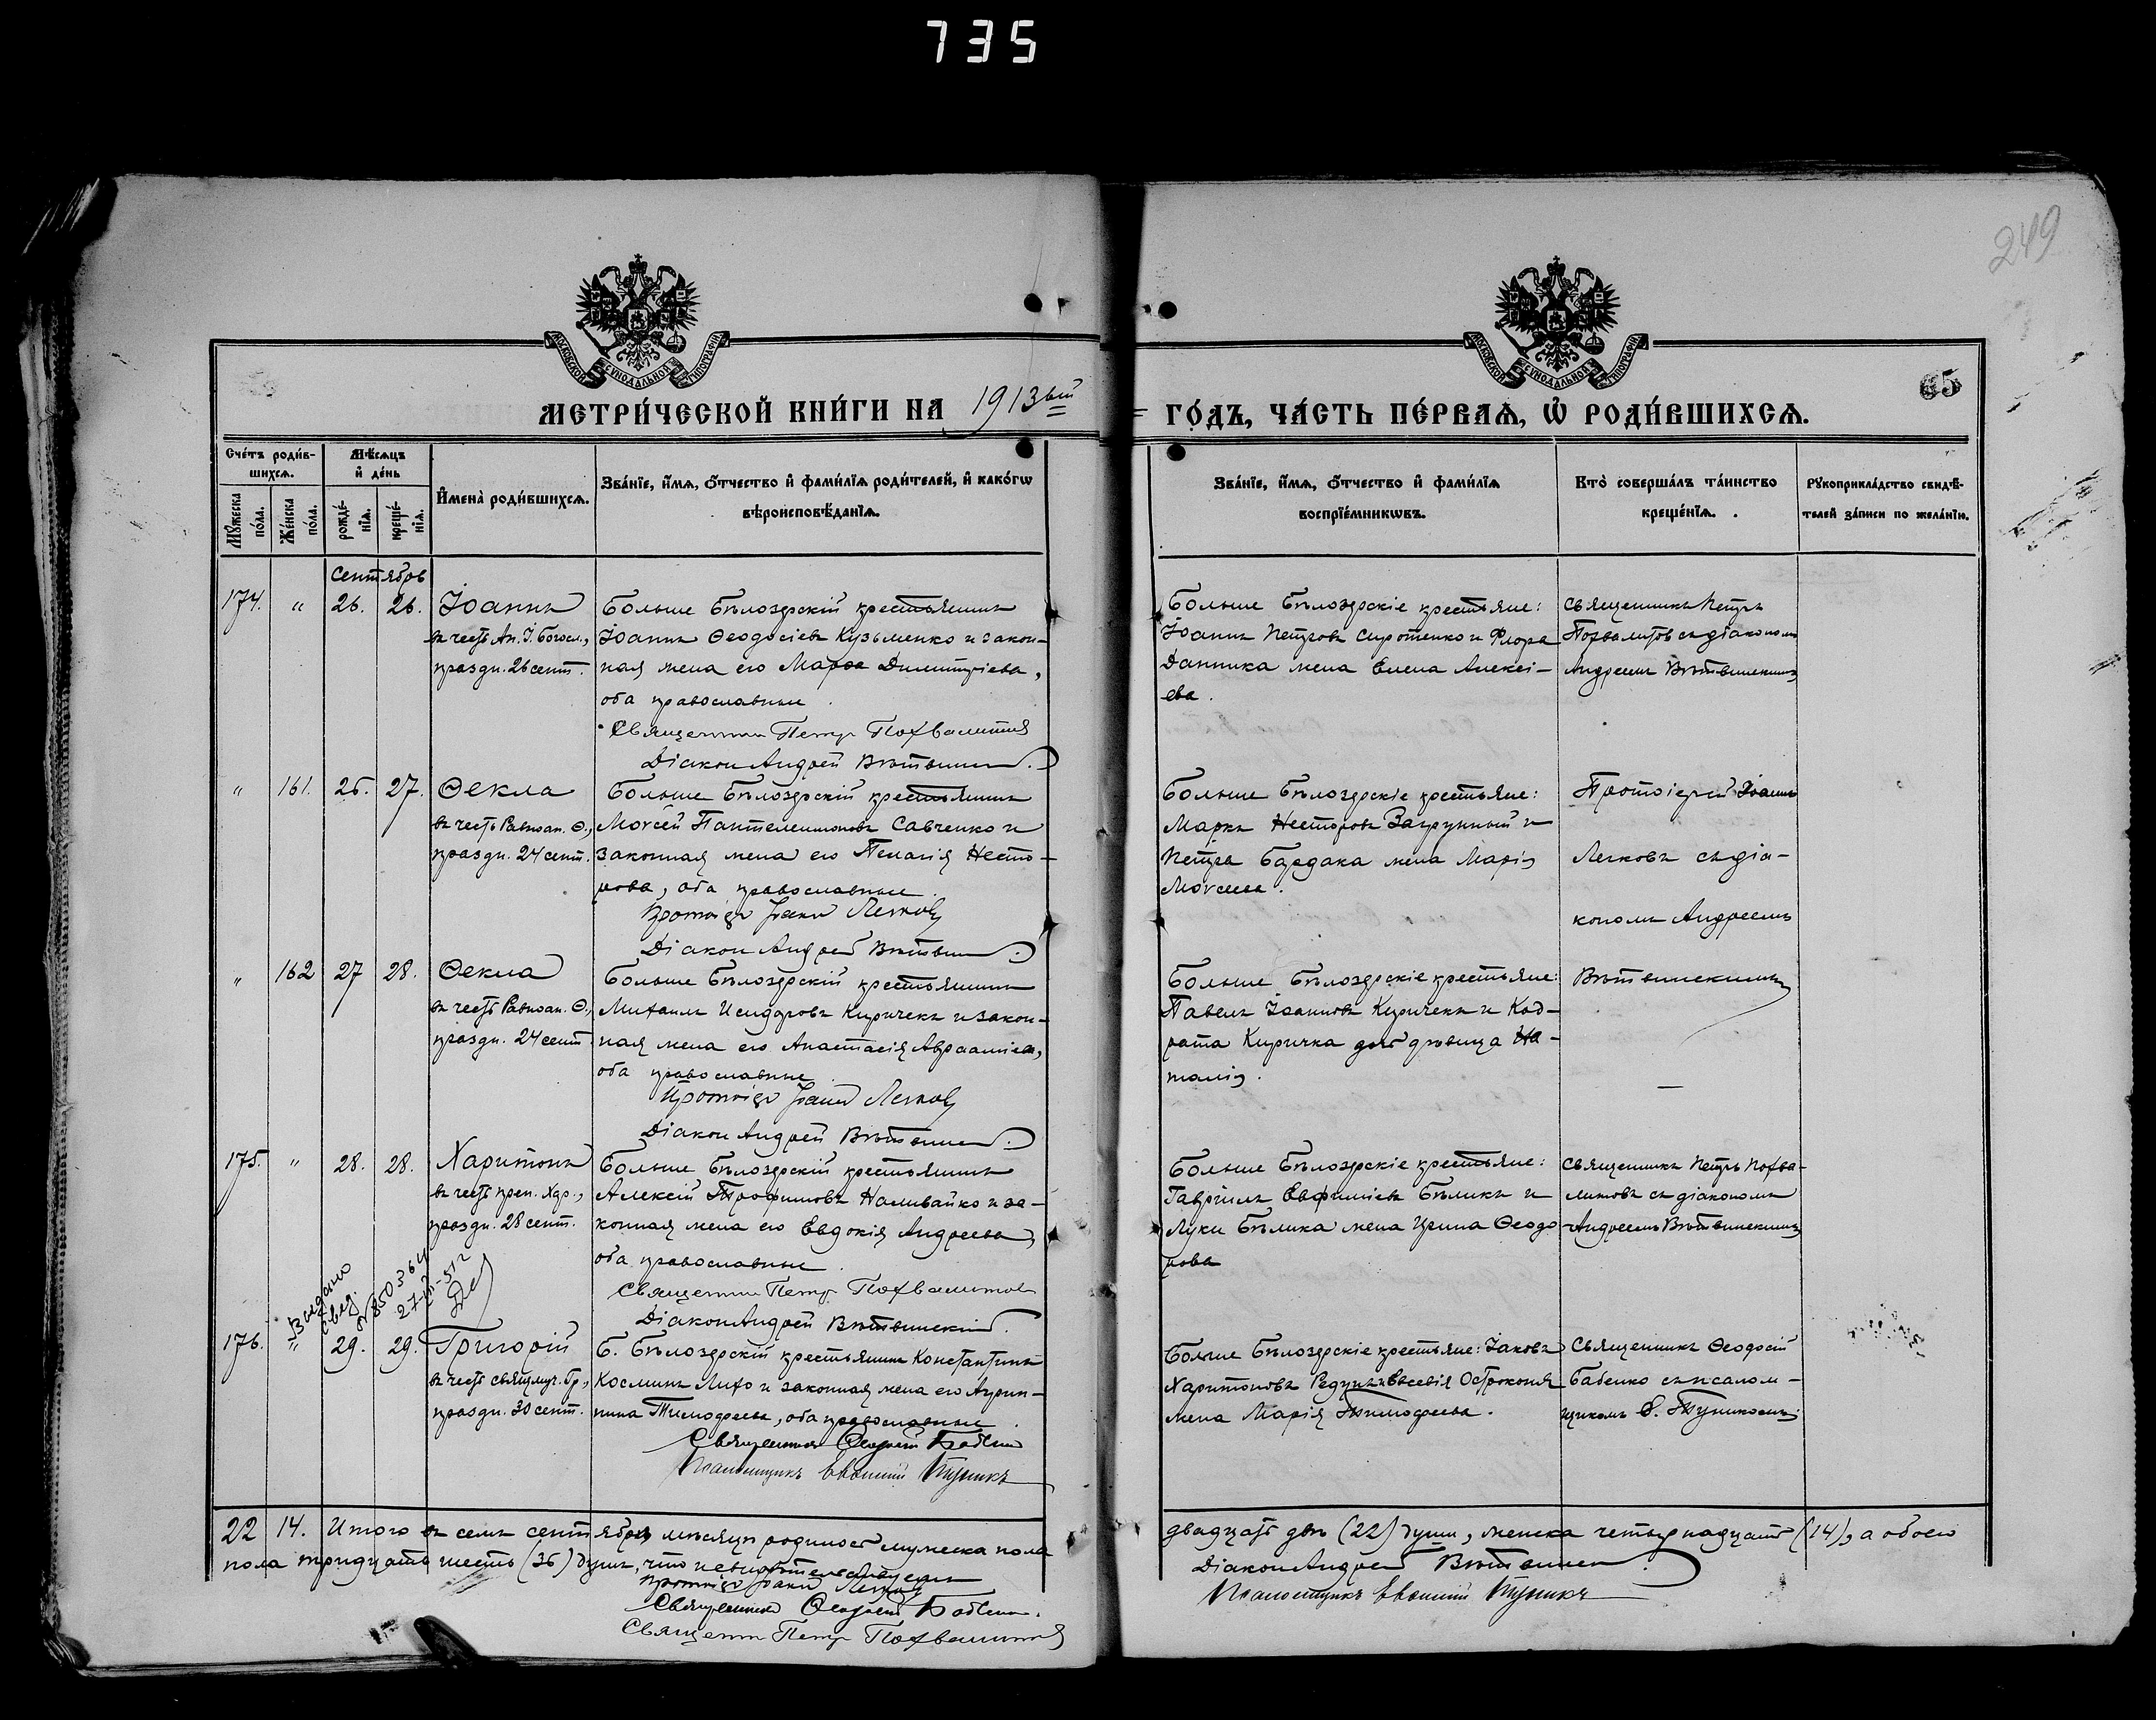 735
249
65
МОСКОВСКОЙ СУНОДАЛЬНОЙ ТИПОГРАФІИ
МОСКОВСКОЙ СУНОДАЛЬНОЙ ТИПОГРАФІИ
МЕТРИ́ЧЕСКОЙ КНИ́ГИ НА 1913ый
ГО́ДЪ, ЧА́СТЬ ПЕ́РВАѦ, Ѡ҆ РОДИ́ВШИХСѦ.
Сче́тъ роди́в-
шихсѧ.
Мѣ́сѧцъ
и҆ де́нь
Мꙋ́жеска
по́ла.
Же́нска
по́ла.
рожде́-
нїѧ.
креще́-
нїѧ.
И҆мена̀ роди́вшихсѧ.
Зва́нїе, и҆́мѧ, ѻ҆́тчество и҆ фами́лїѧ роди́телей, и҆ како́гѡ
вѣроисповѣ́данїѧ.
Зва́нїе, и҆́мѧ, ѻ҆́тчество и҆ фами́лїѧ
воспрїе́мникѡвъ.
Кто̀ соверша́лъ та́инство
креще́нїѧ.
Рꙋкоприкла́дство свидѣ́-
телей за́писи по жела́нїю.
Сентябрь
174. " 26. 26. Іоаннъ
въ честь Ап. І. Богосл.,
праздн. 26 сент.
Больше Бѣлозерскій крестьянинъ
Іоаннъ Ѳеодосіевъ Кузьменко и закон-
ная жена его Марѳа Димитріева,
оба православные.
Священникъ Петръ Похвалитовъ
Діаконъ Андрей Вѣтвинскій.
Больше Бѣлозерскіе крестьяне:
Іоаннъ Петровъ Сиротенко и Флора
Данника жена Елена Алексі-
ева.
Священникъ Петръ
Похвалитовъ съ діакономъ
Андреемъ Вѣтвинскимъ
" 161. 26. 27. Ѳекла
въ честь Равноап. Ѳ.,
праздн. 24 сент.
Больше Бѣлозерскій крестьянинъ
Моѵсей Пантелеимоновъ Савченко и
законная жена его Пелагія Несто-
рова, оба православные.
Протоіер Іоаннъ Легковъ
Діаконъ Андрей Вѣтвинскій.
Больше Бѣлозерскіе крестьяне:
Маркъ Несторовъ Загрунный и
Петра Бардака жена Марія
Моѵсеева.
Протоіерей Іоаннъ
Легковъ съ діа-
кономъ Андреемъ
Вѣтвинскимъ
" 162 27 28. Ѳекла
въ честь Равноап. Ѳ.,
праздн. 24 сент.
Больше Бѣлозерскій крестьянинъ
Михаилъ Исидоровъ Киричекъ и закон-
ная жена его Анастасія Авраамієва,
оба православные.
Протоіер Іоаннъ Легковъ
Діаконъ Андрей Вѣтвинскій.
Больше Бѣлозерскіе крестьяне:
Павелъ Іоанновъ Киричекъ и Код-
рата Киричка дочь дѣвица На-
талія.
175. " 28. 28. Харитонъ
въ честь преп. Хар.,
праздн. 28 сент.
Больше Бѣлозерскій крестьянинъ
Алексій Трофимовъ Наливайко и за-
конная жена его Евдокія Андреева,
оба православные.
Священникъ Петръ Похвалитовъ
Діаконъ Андрей Вѣтвинскій.
Больше Бѣлозерскіе крестьяне:
Гавріилъ Евфиміевъ Бѣликъ и
Луки Бѣлика жена Ирина Ѳеодо-
рова
Священникъ Петръ Похва-
литовъ съ діакономъ
Андреемъ Вѣтвинскимъ
Выдано
свид.
176. " 29. 29. Григорій
въ честь свящмуч. Гр.,
праздн. 30 сент.
Б. Бѣлозерскій крестьянинъ Константинъ
Косминъ Лихо и законная жена его Агрип-
пина Тимофеева, оба православные.
Священникъ Ѳеодосій Бабенко
Псаломщикъ Евѳимій Тупикъ
Больше Бѣлозерскіе крестьяне: Іаковъ
Харитоновъ Редунъ и Евсевія Остроконя
жена Марія Тимофеева.
Священникъ Ѳеодосій
Бабенко съ псалом-
щикомъ Е. Тупикомъ
22 14. Итого въ семъ сентябрѣ мѣсяцѣ родилось мужеска пола двадцать двѣ (22) души, женска четырнадцать (14), а обоего
пола тридцать шесть (36) душъ, что и свидѣтельствуемъ
Протоіер Іоаннъ Легковъ
Священникъ Ѳеодосій Бабенко.
Священникъ Петръ Похвалитовъ
Діаконъ Андрей Вѣтвинскій.
Псаломщикъ Евѳимій Тупикъ